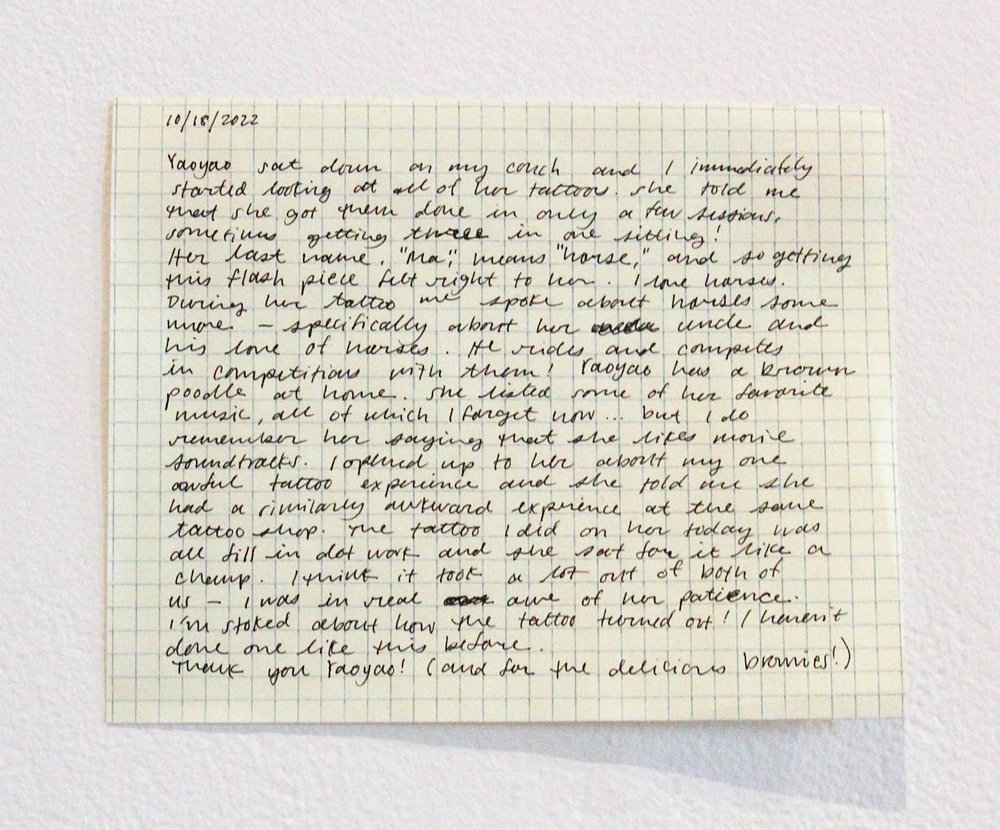 10/18/2022
Yaoyao sat down on my couch and I immediately
started looking at all of her tattoos. She told me
that she got them done in only a few sessions,
sometimes getting three in one sitting!
Her last name, "Ma", means "horse," and so getting
this flash piece felt right to her. I love horses.
During her tattoo we spoke about horses some
more – specifically about her uncle and
his love of horses. He rides and competes
in competitions with them! Yaoyao has a brown
poodle at home. She listed some of her favorite
music, all of which I forget now... but I do
remember her saying that she likes movie
soundtracks. I opened up to her about my one
awful tattoo experience and she told me she
had a similarly awkward experience at the same
tattoo shop. The tattoo I did on her today was
all fill in dot work and she sat for it like a
champ. I think it took a lot out of both of
us – I was in real awe of her patience.
I'm stoked about how the tattoo turned out! I haven't
done one like this before.
Thank you Yaoyao! (and for the delicious brownies!)